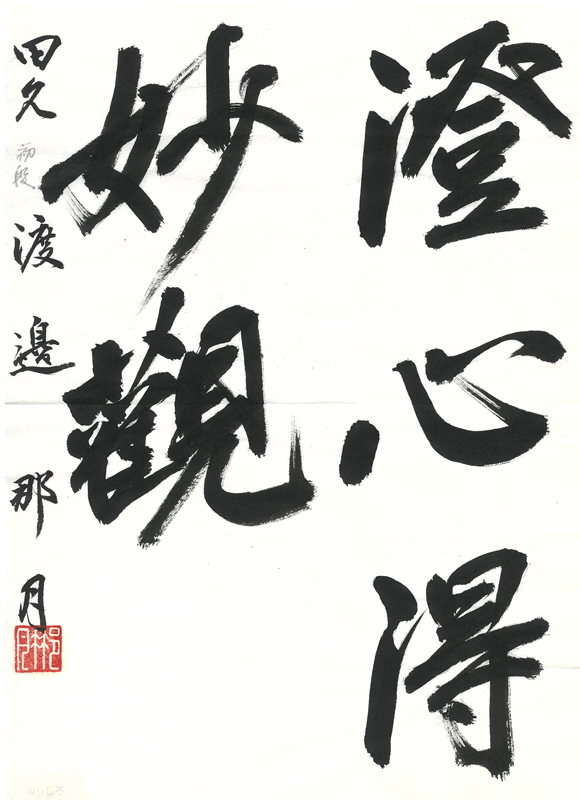 澄心得
妙觀
田久 初段 渡邉那月
那月